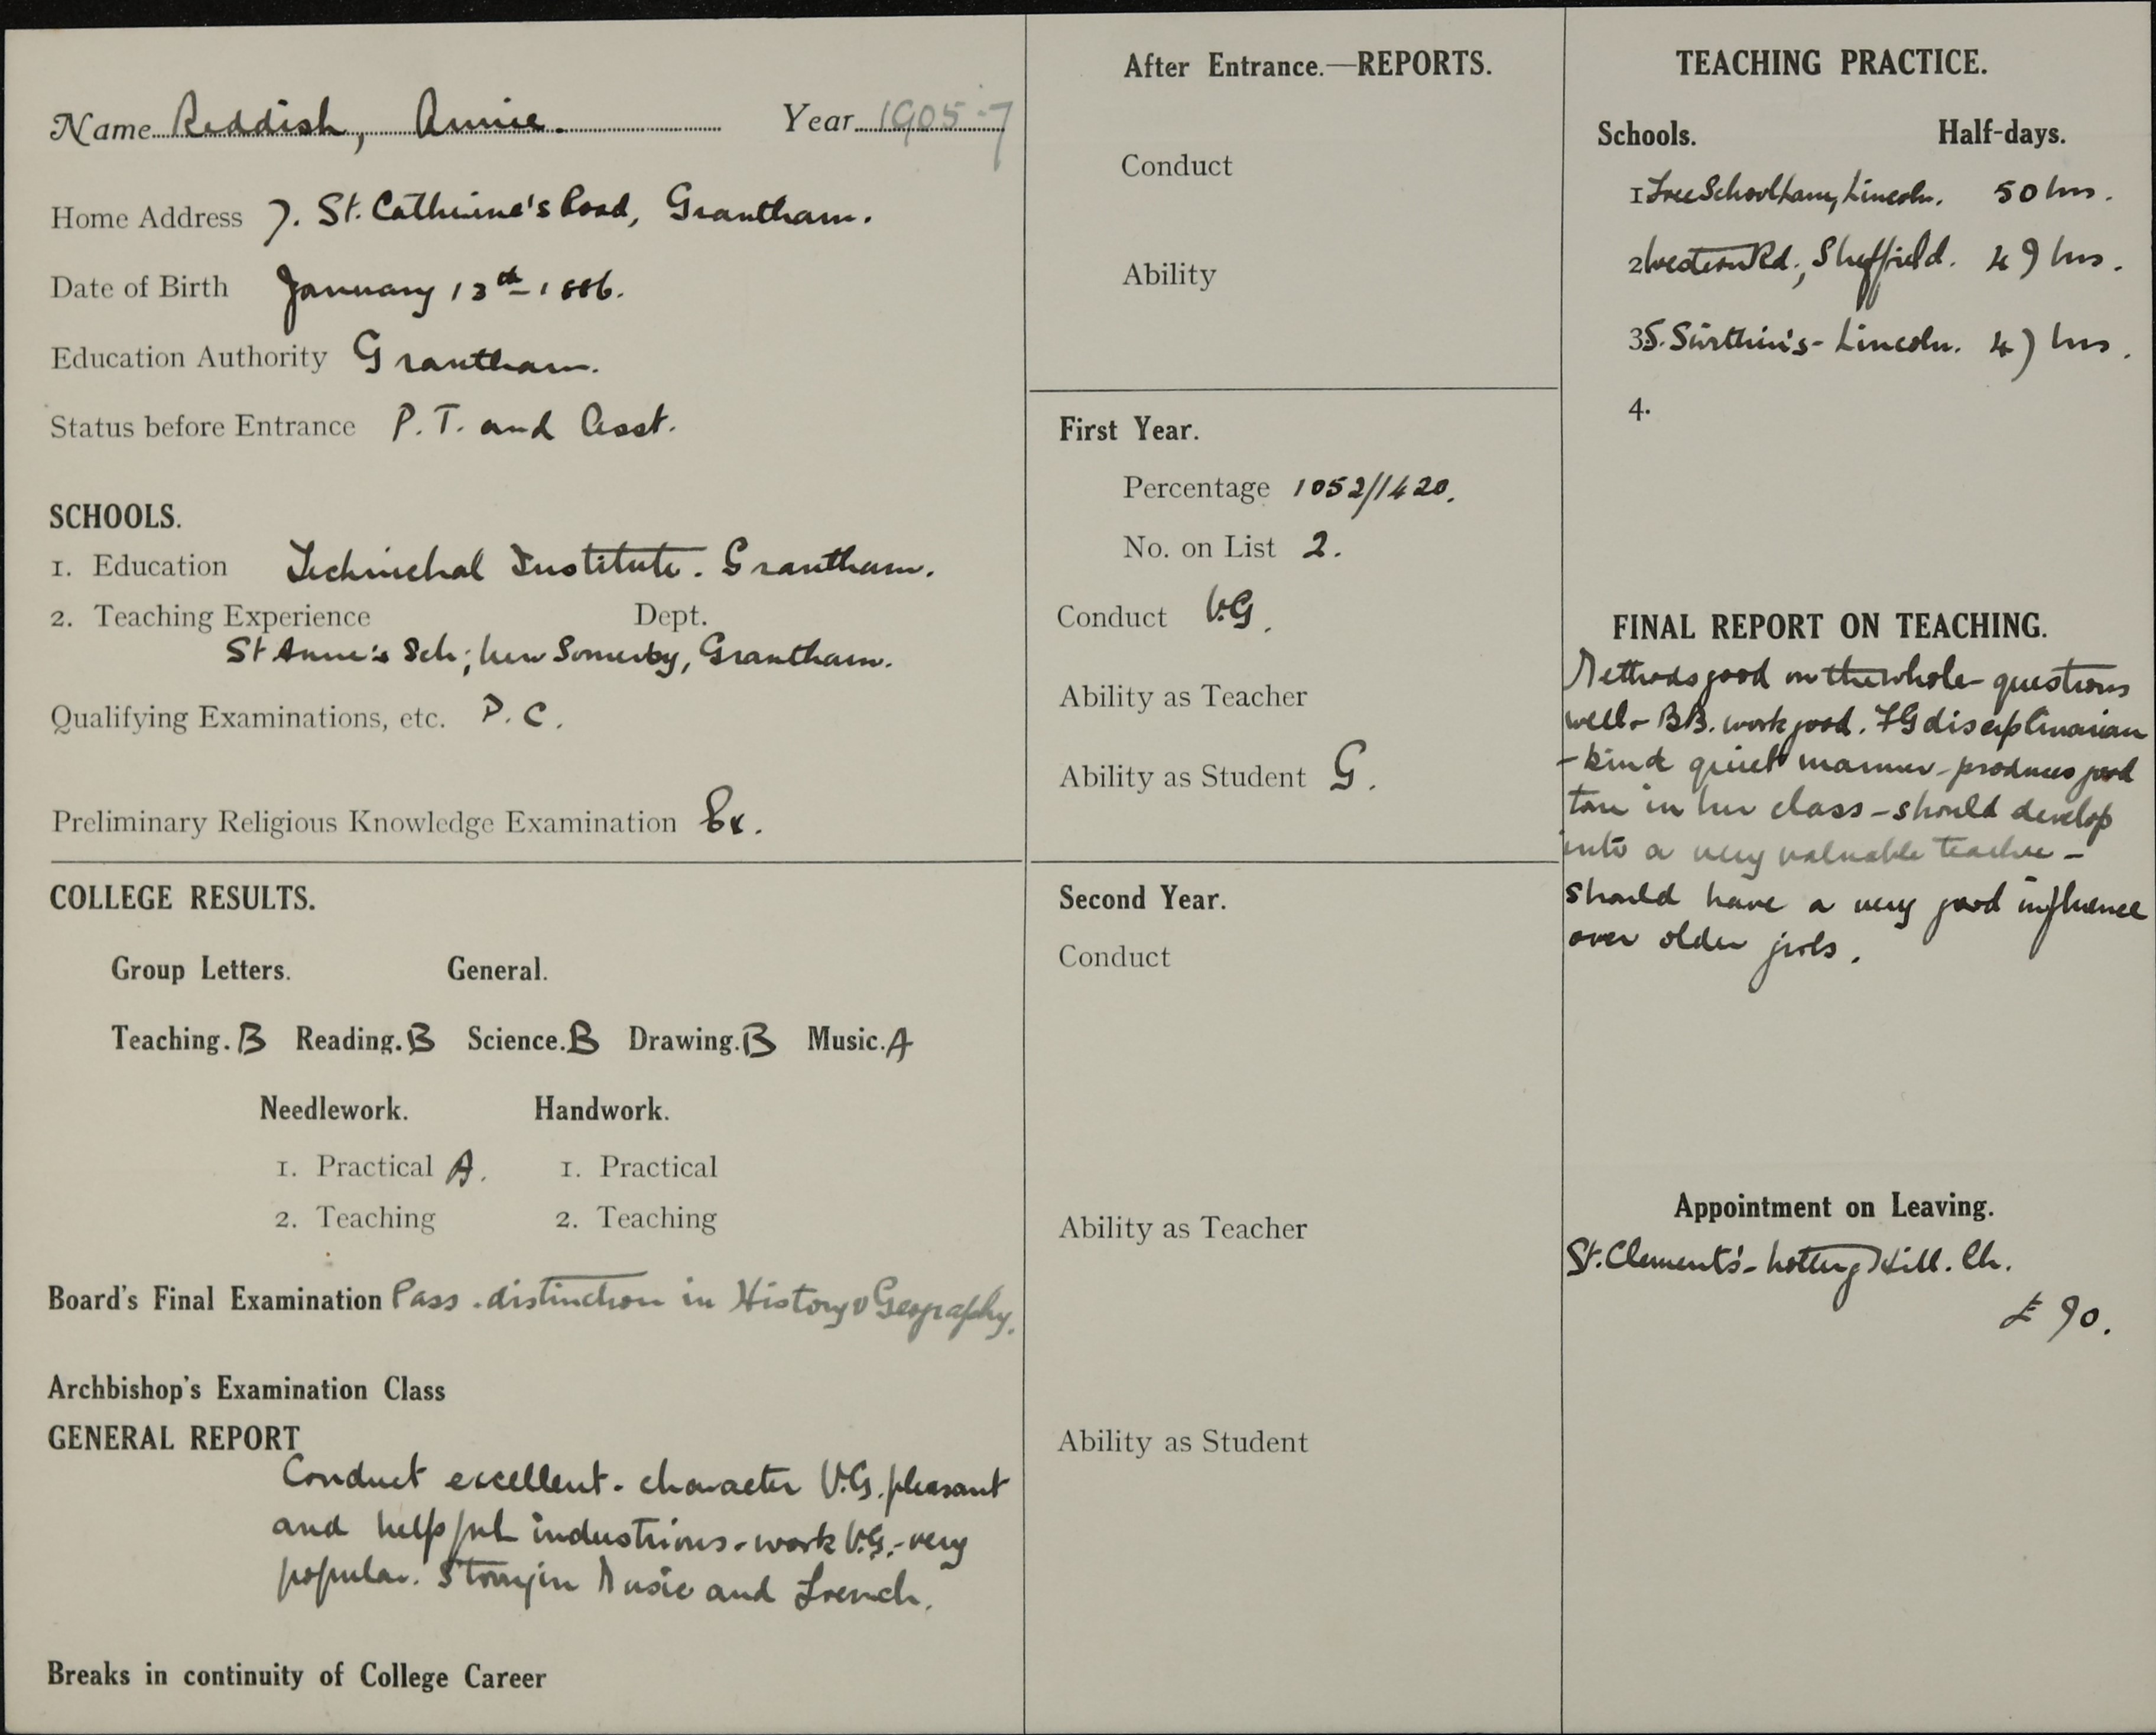 Name Reddish, Annie. Year 1905-7
Home Address 7. St. Catherine's Road, Grantham.
Date of Birth January 13th 1886.
Education Authority Grantham.
Status before Entrance P.T. and Asst.
SCHOOLS.
1. Education Technichal Institute. Grantham.
2. Teaching Experience Dept.
St Anne's Sch; New Somerby, Grantham.
Qualifying Examinations, etc. P.C.
Preliminary Religious Knowledge Examination Ex.
COLLEGE RESULTS.
Group Letters. General.
Teaching. B Reading. B Science. B Drawing. B Music. A
Needlework. Handwork.
1. Practical A. 1. Practical
2. Teaching 2. Teaching
Board's Final Examination Pass. distinction in History & Geography.
Archbishop's Examination Class
GENERAL REPORT
Conduct excellent. character V.G. pleasant
and helpful industrious. work V.G.- very
popular. Strong in Music and French.
Breaks in continuity of College Career
After Entrance.—REPORTS.
Conduct
Ability
First Year.
Percentage 1052/1420.
No. on List 2.
Conduct V.G.
Ability as Teacher
Ability as Student G.
Second Year.
Conduct
Ability as Teacher
Ability as Student
TEACHING PRACTICE.
Schools. Half-days.
1 Free School Lane, Lincoln. 50 hrs.
2 Western Rd., Sheffield. 49 hrs.
3 S. Swithin's - Lincoln. 47 hrs.
4.
FINAL REPORT ON TEACHING.
Methods good on the whole - questions
well - BB. work good. FG disciplinarian
- kind quiet manner - produces good
tone in her class - should develop
into a very valuable teacher -
should have a very good influence
over older girls.
Appointment on Leaving.
St. Clement's - Notting Hill. Ch.
£90.